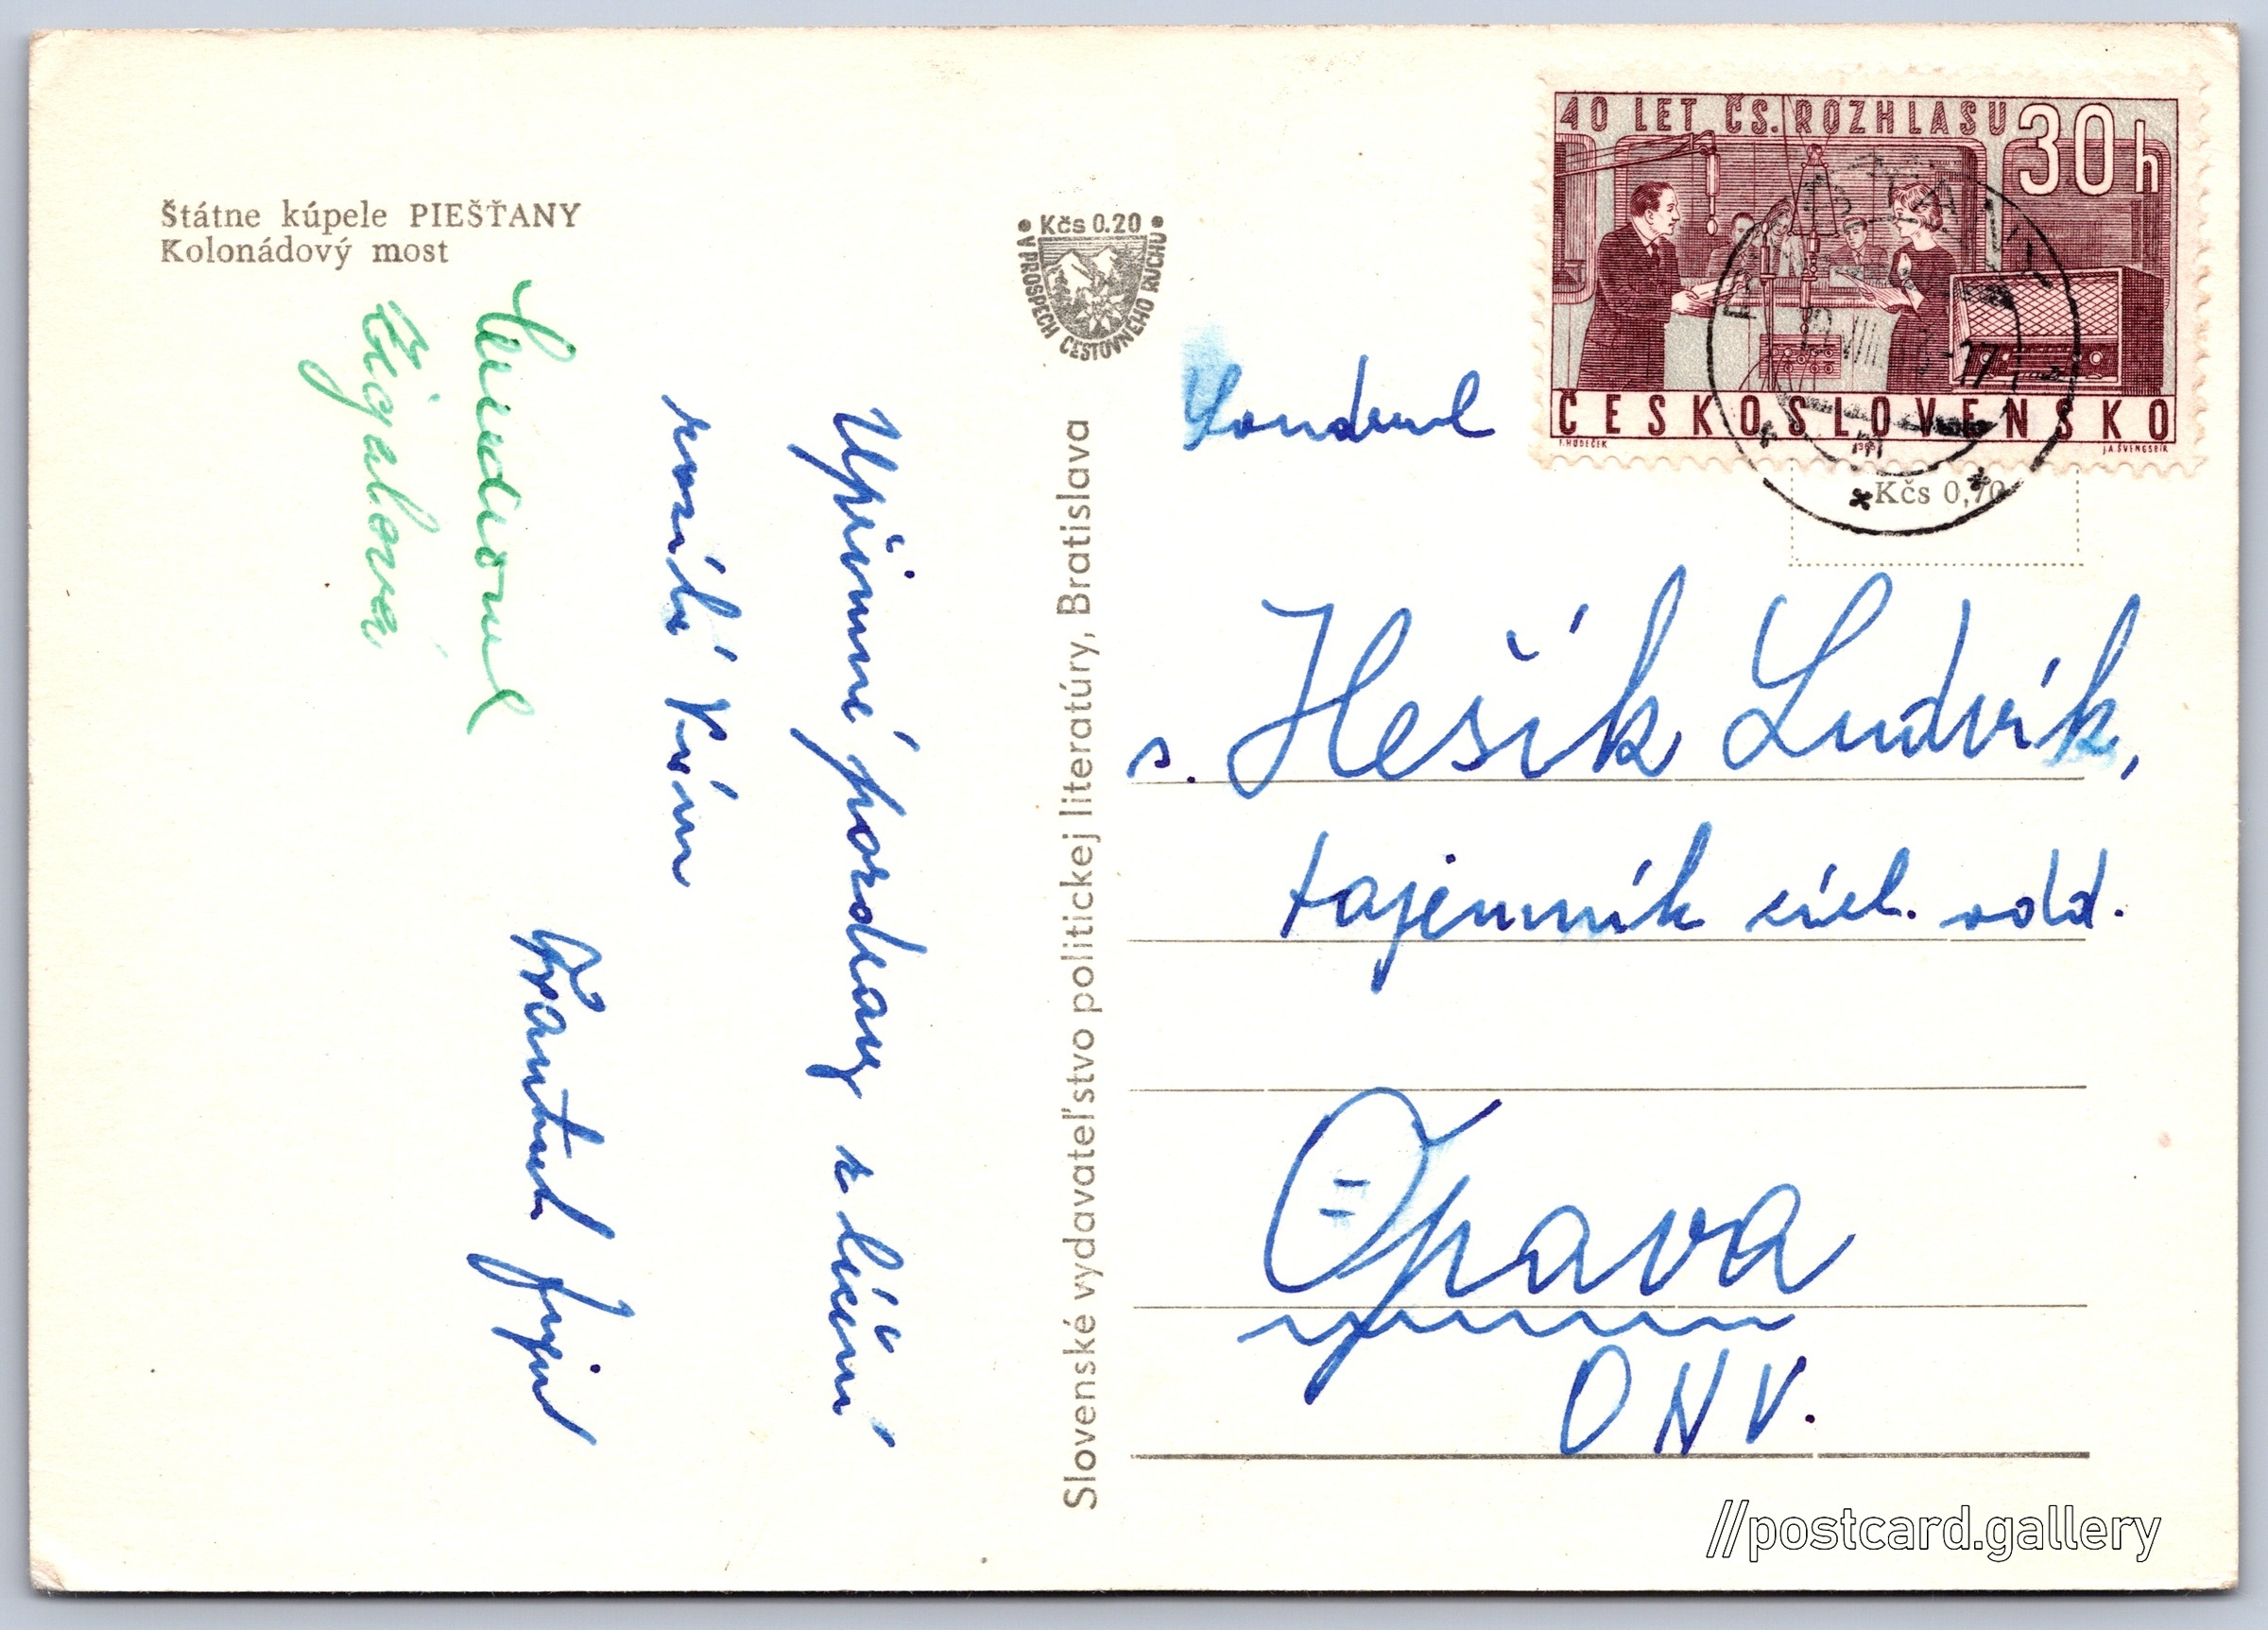 Štátne kúpele PIEŠŤANY
Kolonádový most
Upřímné pozdravy z léčení
zasílá Vám
František
Kčs 0.20
V PROSPECH CESTOVNÉHO RUCHU
Slovenské vydavateľstvo politickej literatúry, Bratislava
40 LET ČS. ROZHLASU 30h
ČESKOSLOVENSKO
F. HUDEČEK 1963 J.A. ŠVENGSBÍR
Kčs 0,70
Soudruh
s. Hešík Ludvík,
tajemník odd.
Opava
ONV.
//postcard.gallery